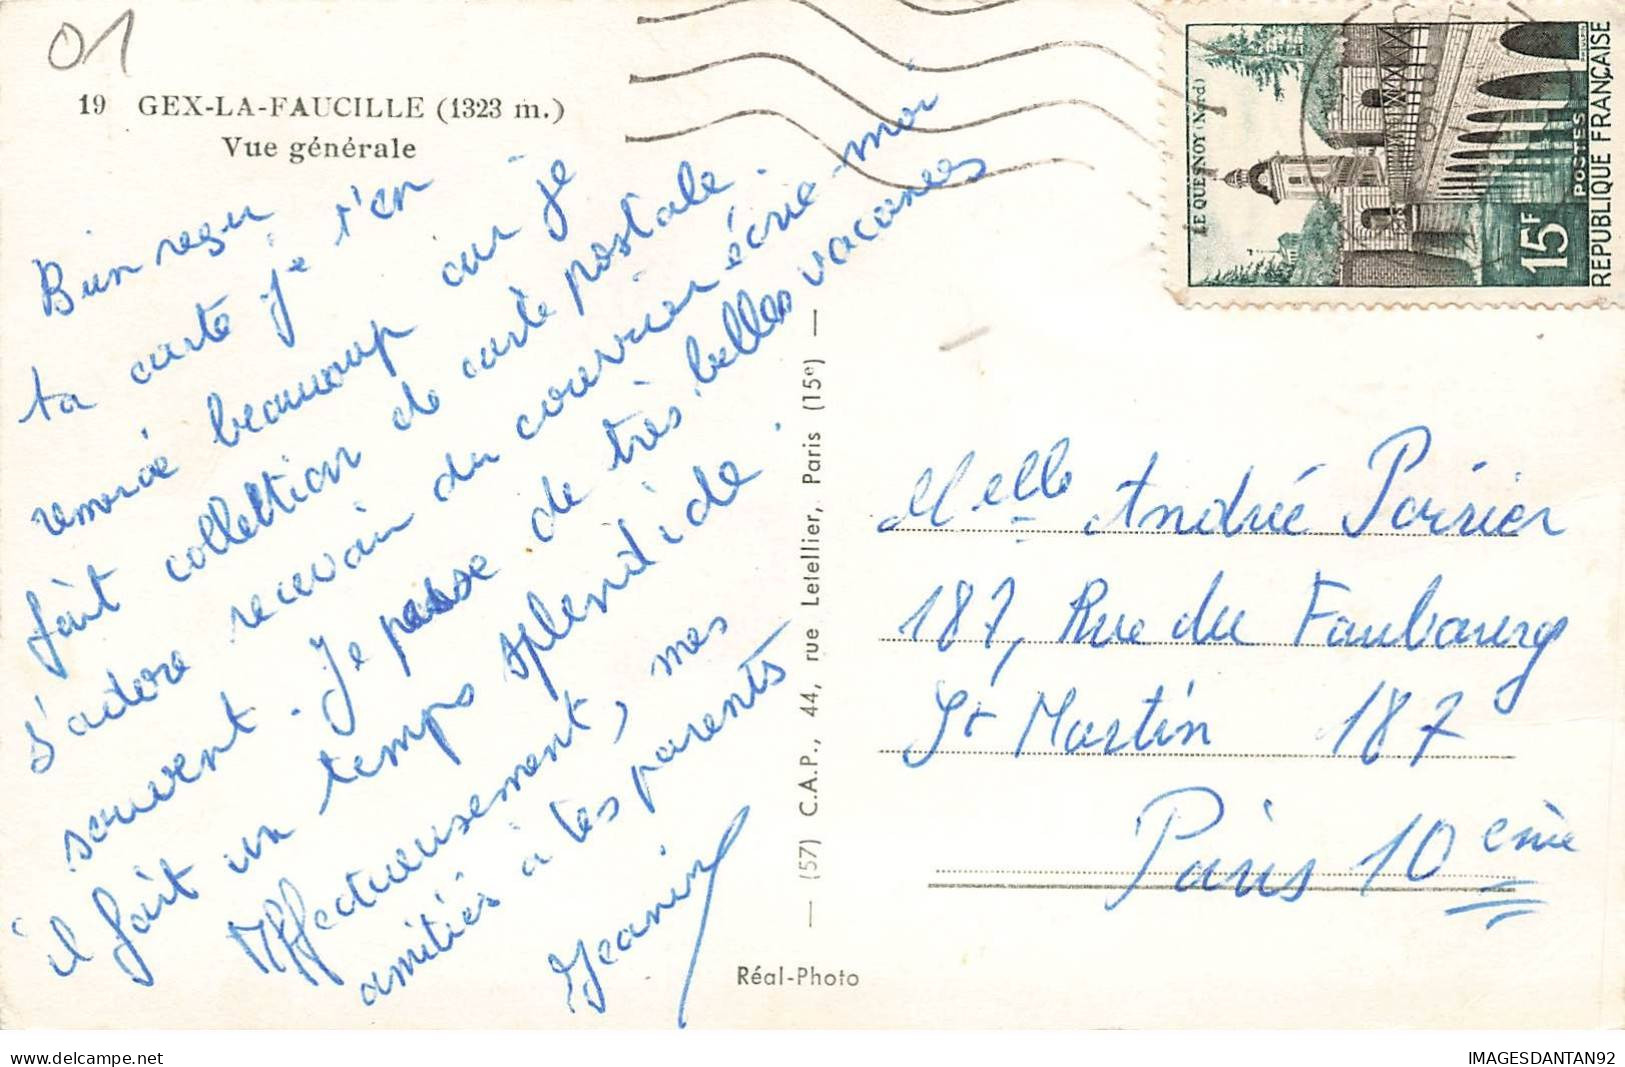 01
19 GEX-LA-FAUCILLE (1323 m.)
Vue générale
Bien reçu
ta carte je t'en
remercie beaucoup car je
fait collection de carte postale.
J'adore recevoir du courrier écrie-moi
souvent. Je passe de très belles vacances
il fait un temps splendide.
Affectueusement, mes
amitiés à tes parents
Jeanine
— (57) C.A.P., 44, rue Letellier, Paris (15e) —
Réal-Photo
LE QUESNOY (Nord)
15F
POSTES
REPUBLIQUE FRANÇAISE
Melle Andrée Poirier
187, Rue du Faubourg
St Martin 187
Paris 10eme
delcampe.net
IMAGESDANTAN92